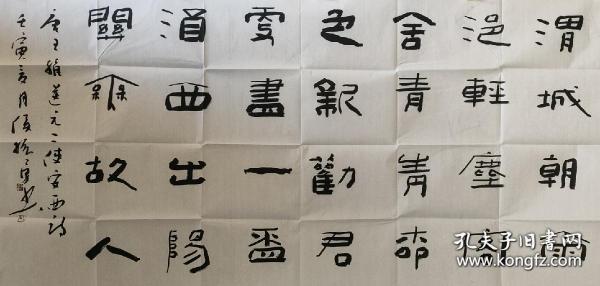 渭城朝雨
浥輕塵客
舍青青柳
色新勸君
更盡一盃
酒西出陽
關無故人
唐王維送元二使安西詩
壬寅
孔夫子旧书网
www.kongfz.com